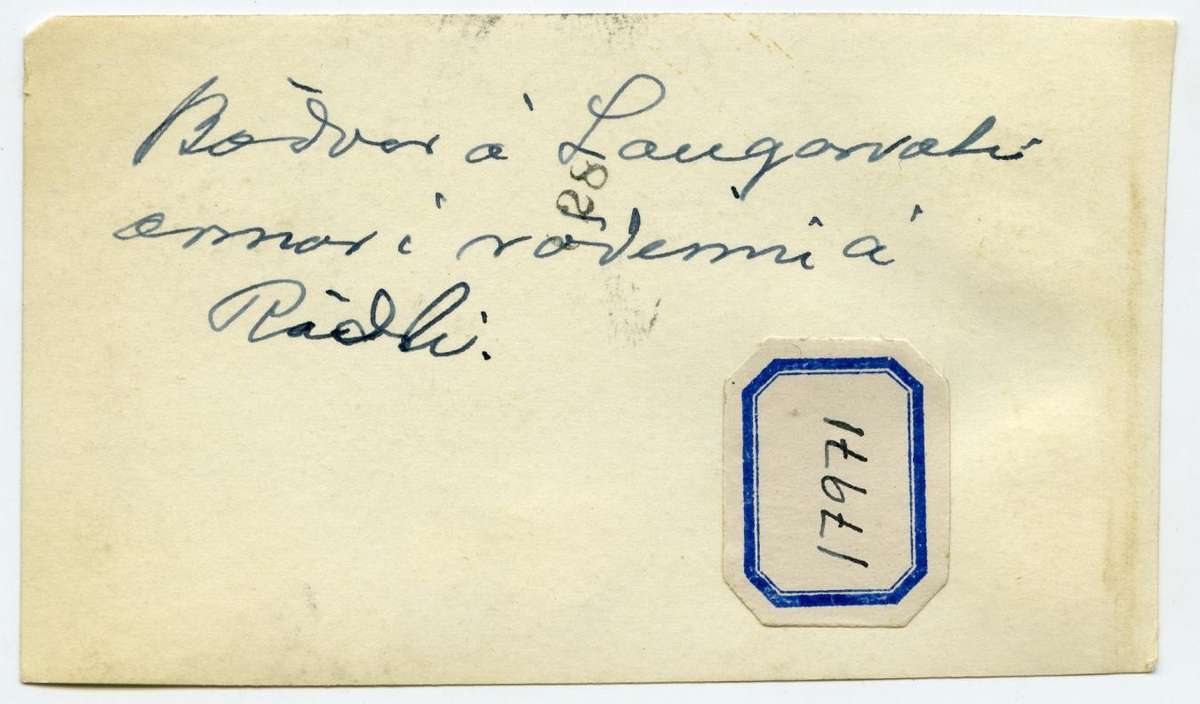 Böðvar á Laugarvatni
annar í röðinni á
Ráðli.
28
17971